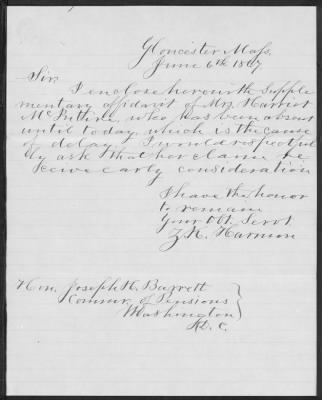 Gloucester Mass.
June 6th 1867
Sir,
I enclose herewith Supple
mentary affidavit of Mrs Harriet
McIntire, who has been absent
until today, which is the cause
of delay. I would respectful
ly ask that her claim re
ceive early consideration
I have the honor
to remain
Your Obt. Servt
Harmon
Hon. Joseph H. Barrett
Commr. of Pensions
Washington
D. C.